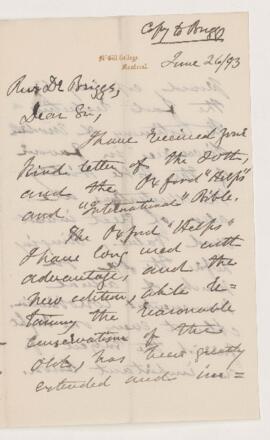 Copy to Briggs
McGill College
Montreal.
June 26/93
Revd Dr Briggs,
Dear Sir,
I have received your
kind letter of the 20th,
and the Oxford "Helps"
and "International" Bible.
The Oxford "Helps"
I have long used with
advantage, and the
new edition, while re=
taining the reasonable
conservatism of the
older, has been greatly
extended and im=